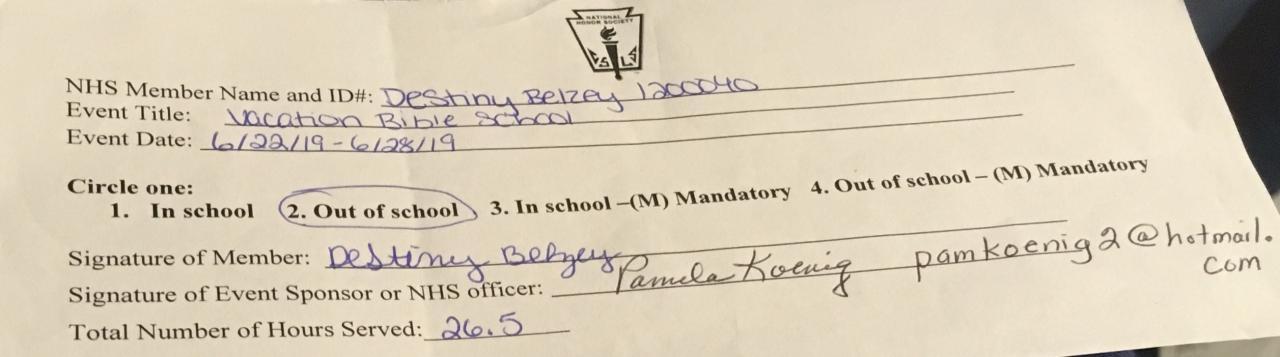 NATIONAL
HONOR SOCIETY
S L
NHS Member Name and ID#: Destiny Belzey 1200040
Event Title: Vacation Bible School
Event Date: 6/22/19-6/28/19
Circle one:
1. In school 2. Out of school 3. In school –(M) Mandatory 4. Out of school – (M) Mandatory
Signature of Member: Destiny Belzey
Signature of Event Sponsor or NHS officer: Pamela Koenig pamkoenig2@hotmail.
com
Total Number of Hours Served: 26.5